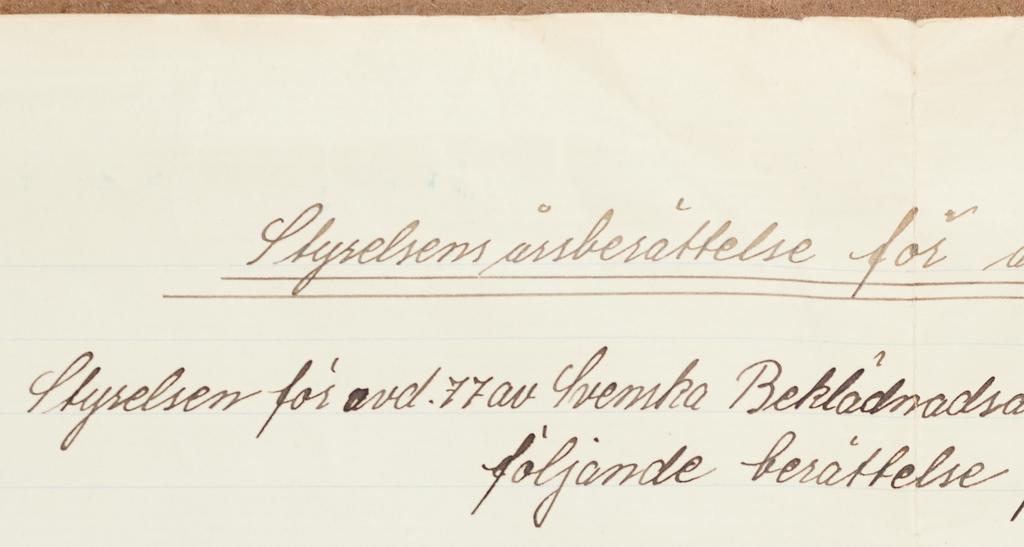 Styrelsens årsberättelse för
Styrelsen för avd. 77 av Svenska Beklädnadsa
följande berättelse